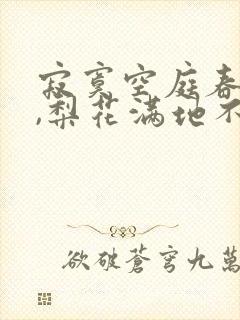 寂寞空庭春
,梨花满地不
欲破蒼穹九萬